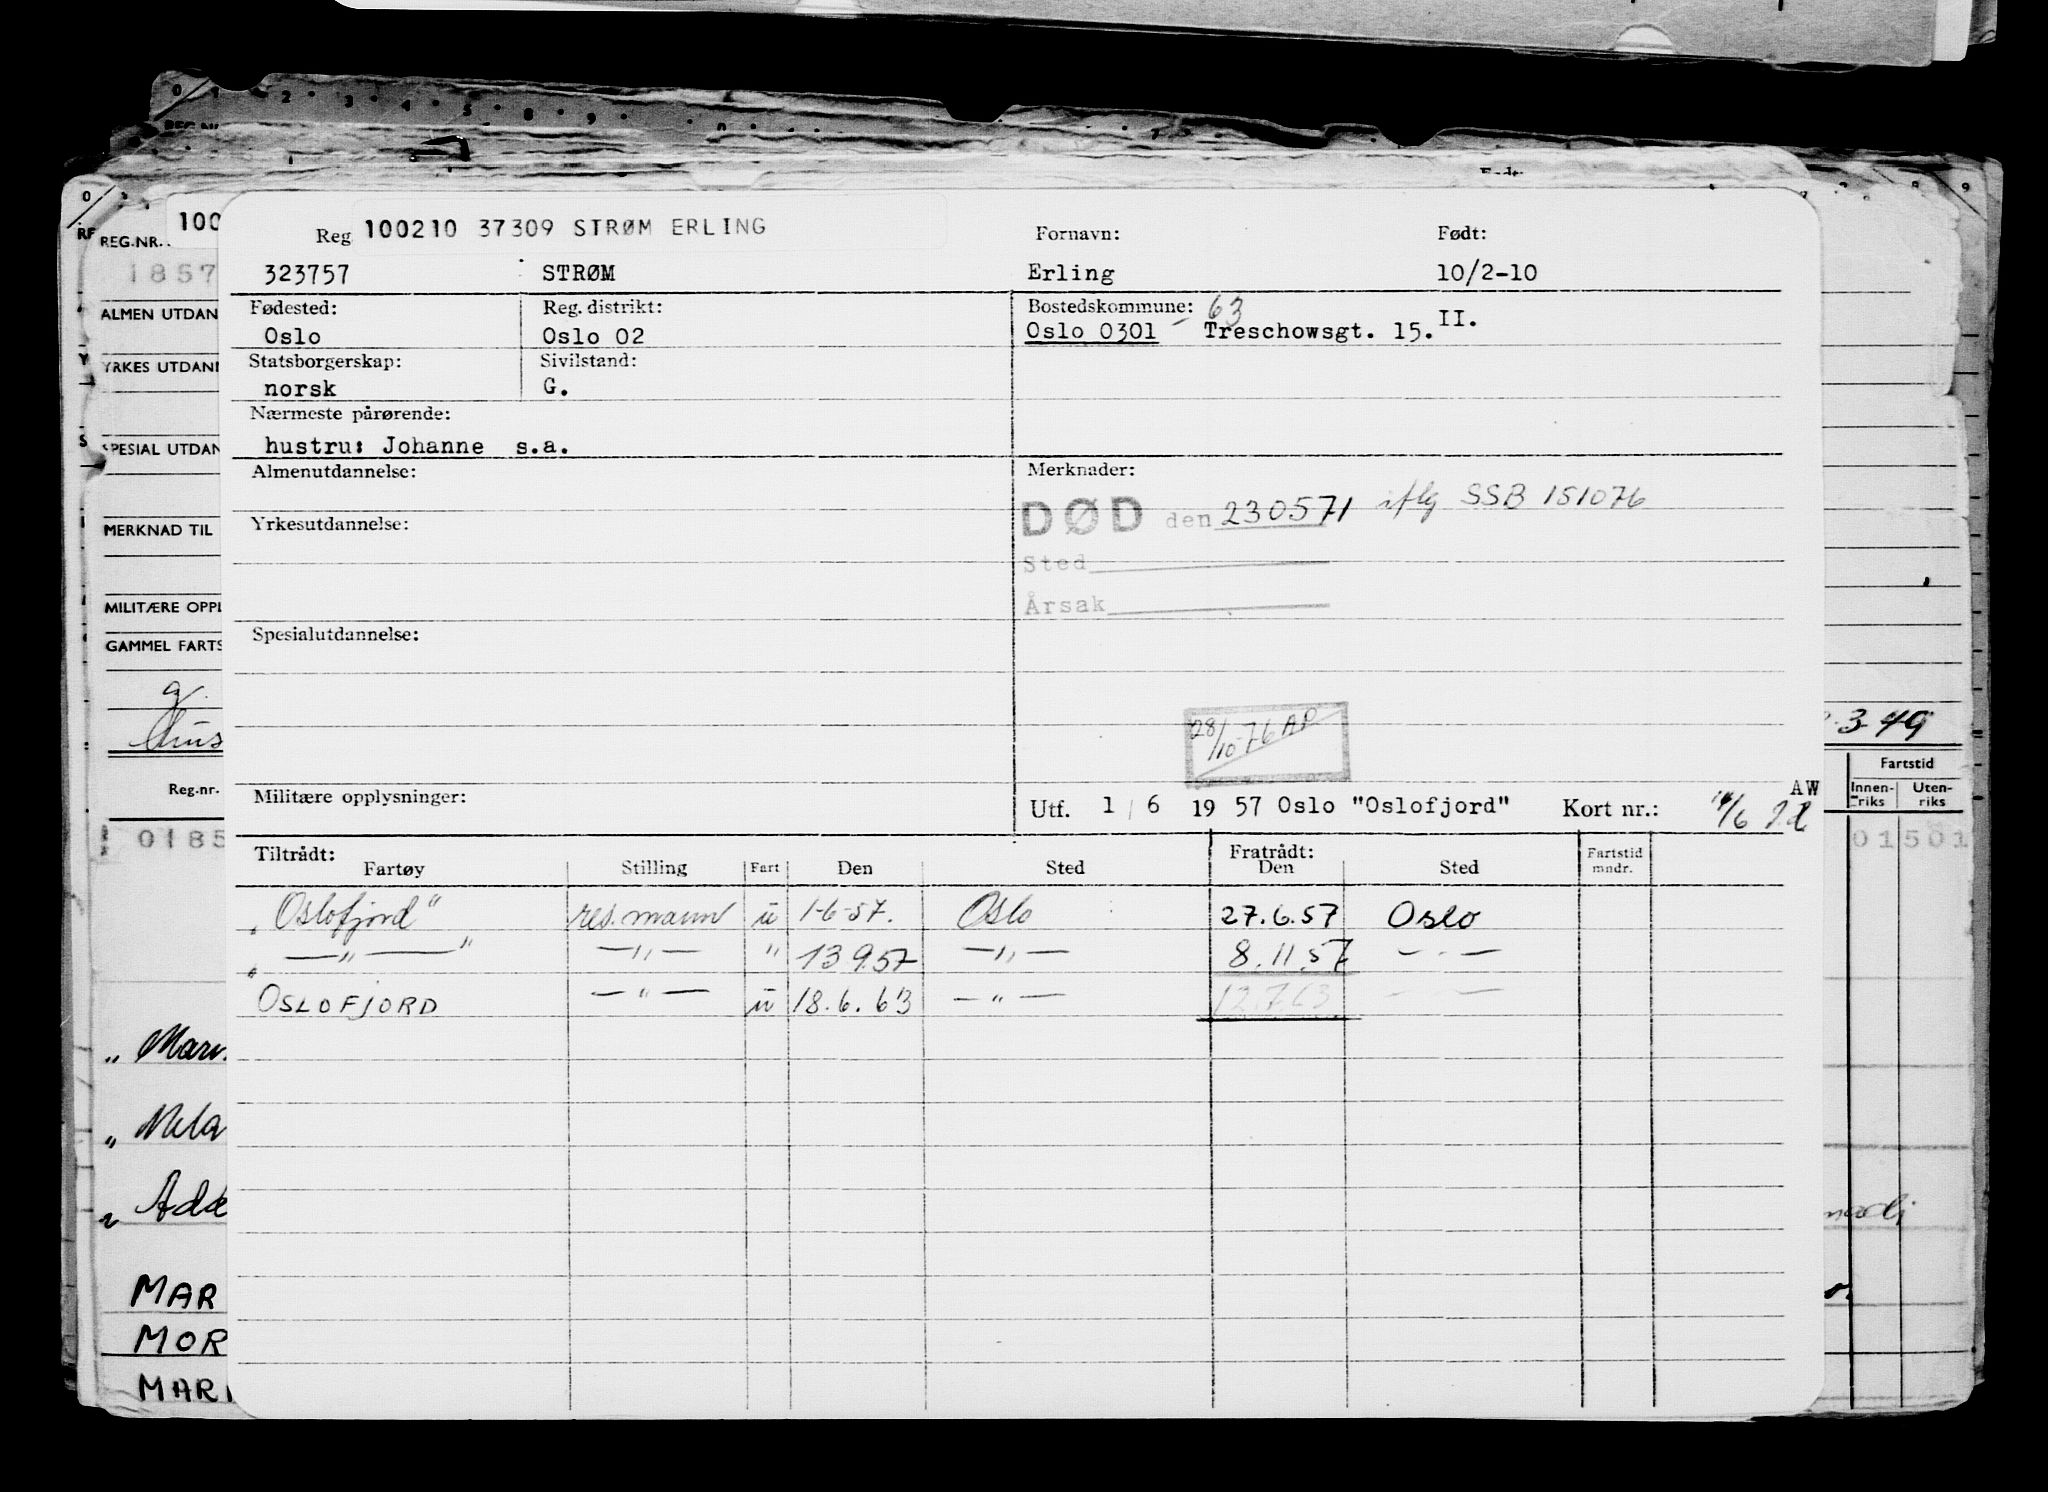 0 1 2 3 4 5 8 9
Født:
REG.NR.
100
1857
ALMEN UTDAN
YRKES UTDAN
SPESIAL UTDAN
MERKNAD TIL
MILITÆRE OPPL
GAMMEL FARTS
g.
Reg.nr.
0185
„ Mar
„ Mela
„ Adde
MAR
MOR
MAR
Reg 100210 37309 STRØM ERLING Fornavn: Født:
323757 STRØM Erling 10/2-10
Fødested: Reg. distrikt: Bostedskommune: 63
Oslo Oslo 02 Oslo 0301 Treschowsgt. 15. II.
Statsborgerskap: Sivilstand:
norsk G.
Nærmeste pårørende:
hustru: Johanne s.a.
Almenutdannelse: Merknader:
DØD den 230571 iflg SSB 151076
Yrkesutdannelse:
Sted
Årsak
Spesialutdannelse:
28/10-76 AP
Militære opplysninger: Utf. 1/6 1957 Oslo "Oslofjord" Kort nr.: AW
Tiltrådt: Fratrådt:
Fartøy Stilling Fart Den Sted Den Sted Fartstid mndr.
„Oslofjord" res.mann u 1-6-57. Oslo 27.6.57 Oslo
„ —„— " —„— " 13.9.57 —„— 8.11.57 —"—
OSLOFJORD —"— u 18.6.63 —"— 12.7.63 —"—
3-49
Fartstid
Innen-riks Uten-riks
01501